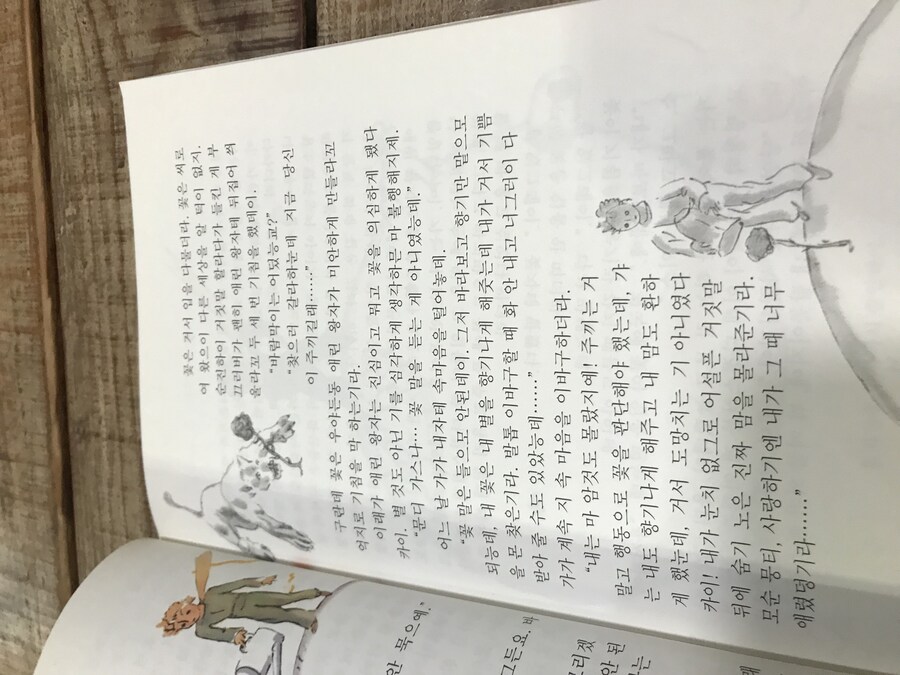 안 묵으예."
그든요. 바
리겟
안 된
꽃은 거서 입을 다물더라. 꽃은 씨로
여 왔으이 다른 세상을 알 턱이 없지.
순진하이 거짓말 할라다가 들킨 게 부
끄러버가 괜히 애린 왕자테 뒤집어 씌
울라꼬 두 세 번 기침을 했데이.
"바람막이는 어딨능교?"
"찾으러 갈라하눈데 지금 당신
이 주끼길래……"
구란테 꽃은 우야든동 애린 왕자가 미안하게 만들라꼬
억지로 기침을 막 하는기라.
이래가 애린 왕자는 진심이고 뭐고 꽃을 의심하게 됐다
카이. 별 것도 아닌 기를 심각하게 생각하믄 마 불행해지제.
"문디 가스나… 꽃 말을 듣는 게 아니였는데."
어느 날 가가 내자테 속마음을 털어놓데.
"꽃 말은 들으모 안된데이. 그저 바라보고 향기만 맡으모
되능데, 내 꽃은 내 별을 향기나게 해줏는데 내가 거서 기쁨
을 몬 찾은기라. 발톱 이바구할 때 화 안 내고 너그러이 다
받아 줄 수도 있었능데……"
가가 계속 지 속 마음을 이바구하더라.
"내는 마 암것도 몰랐지예! 주끼는 거
말고 행동으로 꽃을 판단해야 했는데, 갸
는 내도 향기나게 해주고 내 맘도 환하
게 했눈데, 거서 도망치는 기 아니였다
카이! 내가 눈치 없그로 어설픈 거짓말
뒤에 숨기 노은 진짜 맘을 몰라준기라.
모순 뭉티, 사랑하기엔 내가 그 때 너무
애맀덩기라……"